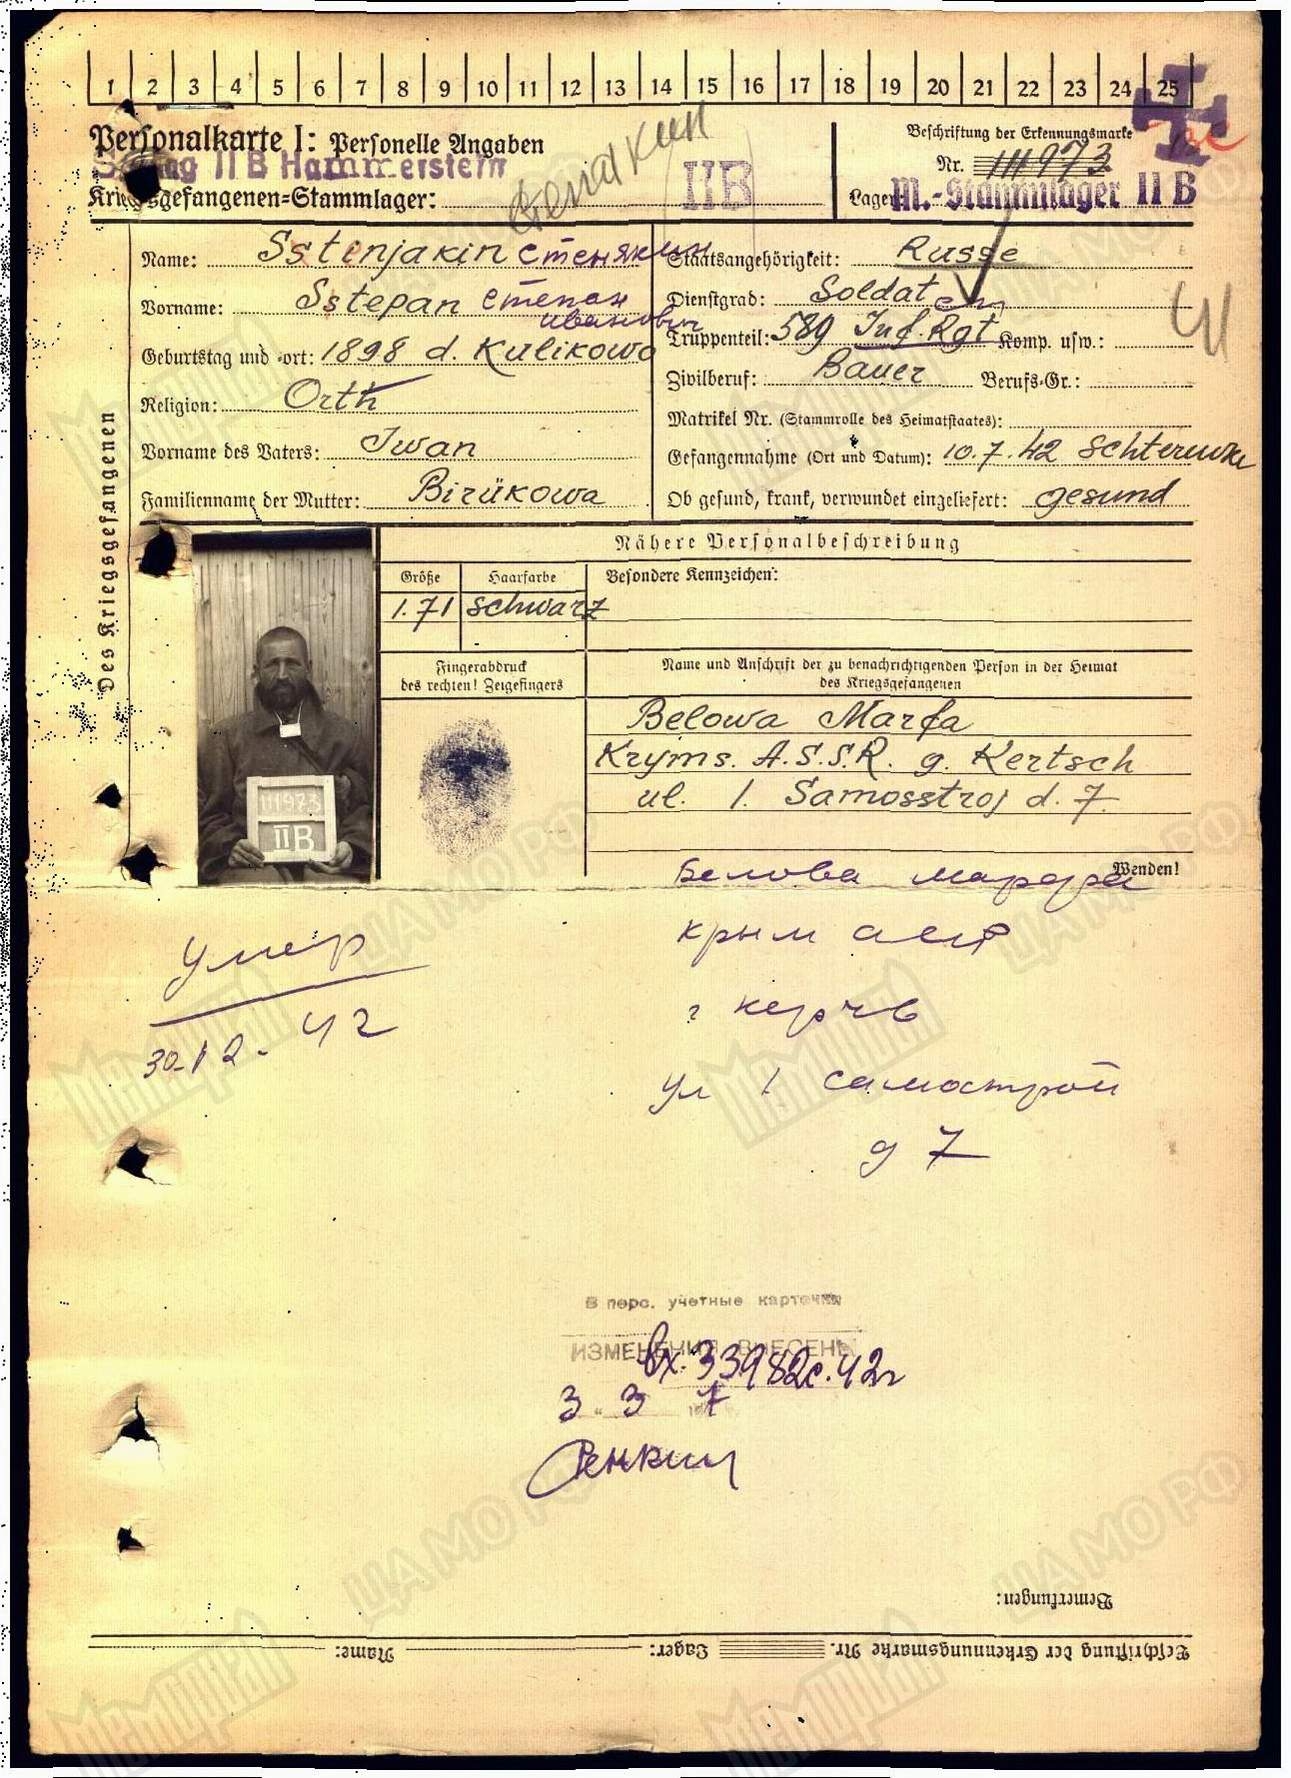 1 2 3 4 5 6 7 8 9 10 11 12 13 14 15 16 17 18 19 20 21 22 23 24 25
Personalkarte I: Personelle Angaben
Beschriftung der Erkennungsmarke
II B Hammerstein
Стенякин
IIB
Nr. 111973
Kriegsgefangenen-Stammlager:
Lager: M.-Stammlager II B
Des Kriegsgefangenen
Name: Sstenjakin Стенякин
Vorname: Sstepan Степан
Иванович
Geburtstag und -ort: 1898 d. Kulikowo
Religion: Orth
Vorname des Vaters: Iwan
Familienname der Mutter: Birükowa
Staatsangehörigkeit: Russe
Dienstgrad: Soldat
Truppenteil: 589 Inf. Rgt Komp. usw.:
Zivilberuf: Bauer Berufs-Gr.:
Matrikel Nr. (Stammrolle des Heimatstaates):
Gefangennahme (Ort und Datum): 10.7.42
Ob gesund, krank, verwundet eingeliefert: gesund
Nähere Personalbeschreibung
Größe Haarfarbe Besondere Kennzeichen:
1.71 schwarz
Fingerabdruck
des rechten! Zeigefingers
Name und Anschrift der zu benachrichtigenden Person in der Heimat
des Kriegsgefangenen
111973
IIB
Belowa Marfa
Kryms. A.S.S.R. g. Kertsch
ul. 1. Samosstroj d. 7.
Wenden!
Белова Марфа
Крым АССР
г Керчь
ул 1 самострой
д 7
Умер
30.12.42
В перс. учетные карточки
ИЗМЕНЕНИЯ ВНЕСЕНЫ
вх. 33982с. 42г
3 3 7
Bemerkungen:
Beschriftung der Erkennungsmarke Nr. Lager: Name:
Мемориал
ЦАМО РФ